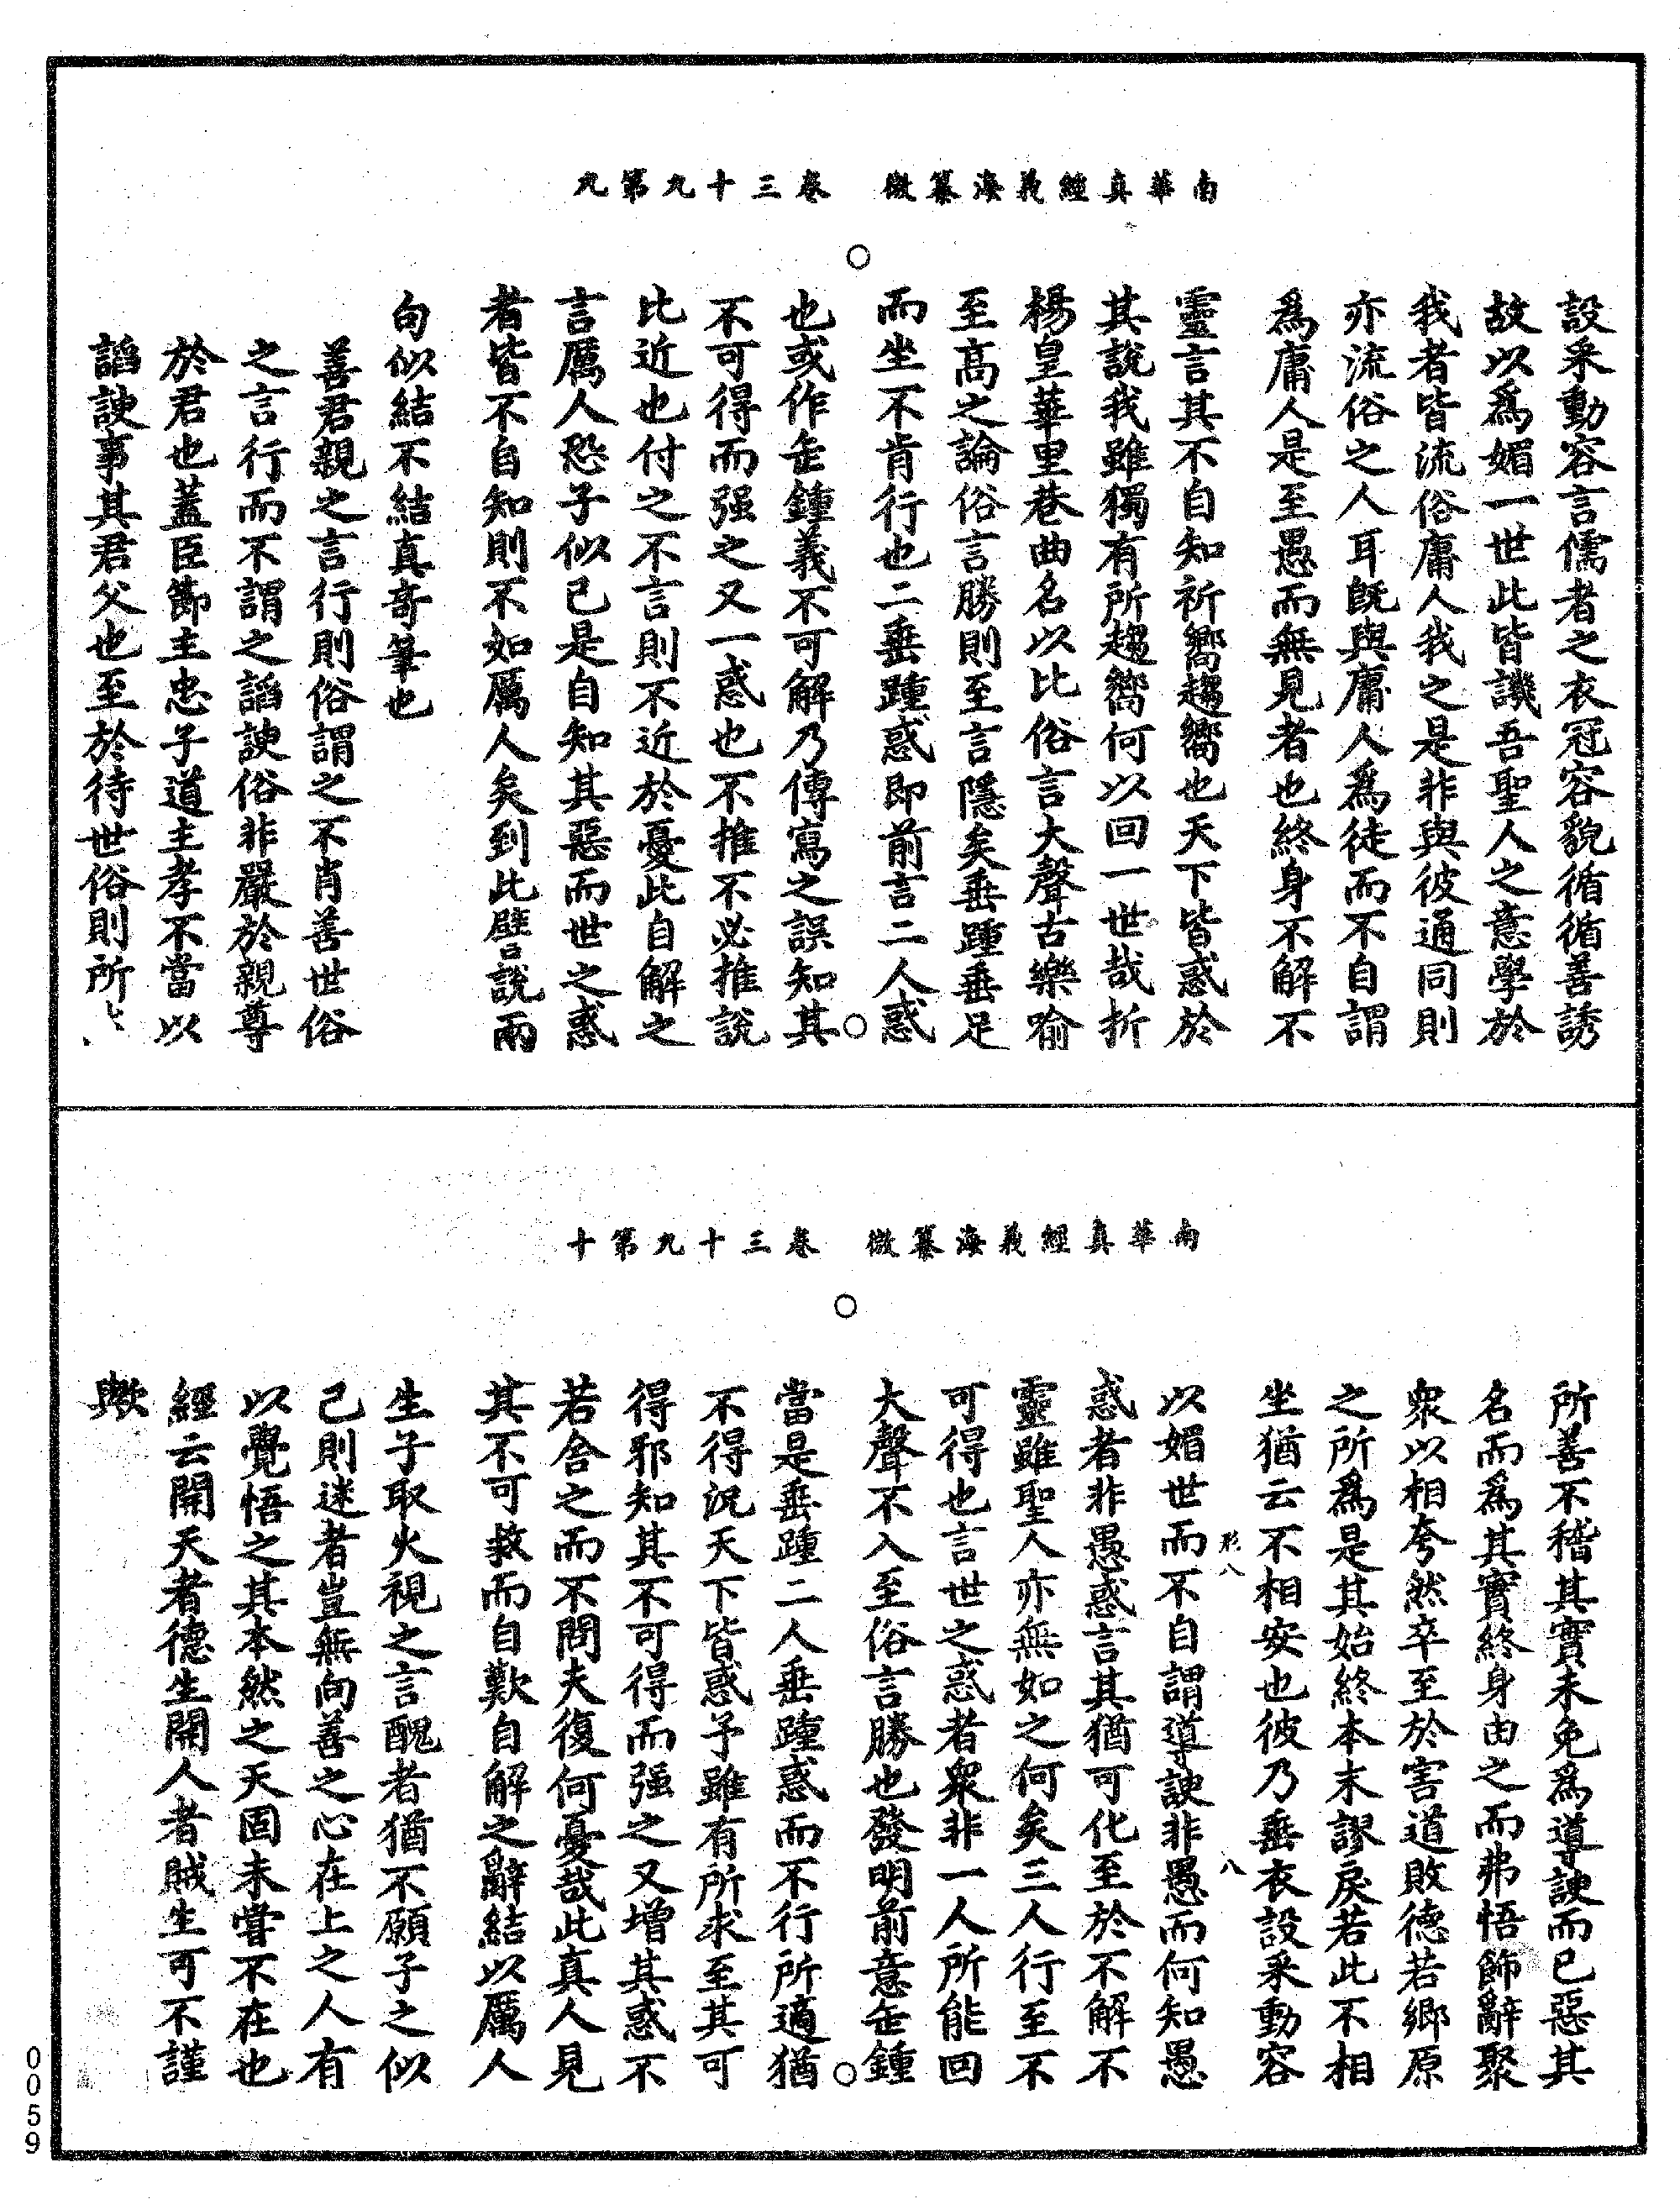 南華真經義海纂微　卷三十九第九
設采動容言儒者之衣冠容貌循循善誘
故以爲媚一世此皆譏吾聖人之意學於
我者皆流俗庸人我之是非與彼通同則
亦流俗之人耳旣與庸人爲徒而不自謂
爲庸人是至愚而無見者也終身不解不
靈言其不自知祈嚮趨嚮也天下皆惑於
其說我雖獨有所趨嚮何以回一世哉折
楊皇華里巷曲名以比俗言大聲古樂喻
至高之論俗言勝則至言隱矣垂踵垂足
而坐不肯行也二垂踵惑即前言二人惑
也或作缶鍾義不可解乃傳寫之誤知其
不可得而强之又一惑也不推不必推說
比近也付之不言則不近於憂此自解之
言厲人恐子似己是自知其惡而世之惑
者皆不自知則不如厲人矣到此譬說兩
句似結不結真奇筆也
善君親之言行則俗謂之不肖善世俗
之言行而不謂之謟諛俗非嚴於親尊
於君也蓋臣節主忠子道主孝不當以
謟諛事其君父也至於待世俗則所
南華真經義海纂微　卷三十九第十
所善不稽其實未免爲導諛而已惡其
名而爲其實終身由之而弗悟飾辭聚
衆以相夸然卒至於害道敗德若鄉原
之所爲是其始終本末謬戾若此不相
坐猶云不相安也彼乃垂衣設采動容
形八　八
以媚世而不自謂導諛非愚而何知愚
惑者非愚惑言其猶可化至於不解不
靈雖聖人亦無如之何矣三人行至不
可得也言世之惑者衆非一人所能回
大聲不入至俗言勝也發明前意缶鍾
當是垂踵二人垂踵惑而不行所適猶
不得況天下皆惑予雖有所求至其可
得邪知其不可得而强之又增其惑不
若舍之而不問夫復何憂哉此真人見
其不可救而自歎自解之辭結以厲人
生子取火視之言醜者猶不願子之似
己則迷者豈無向善之心在上之人有
以覺悟之其本然之天固未嘗不在也
經云開天者德生開人者賊生可不謹
歟
0059